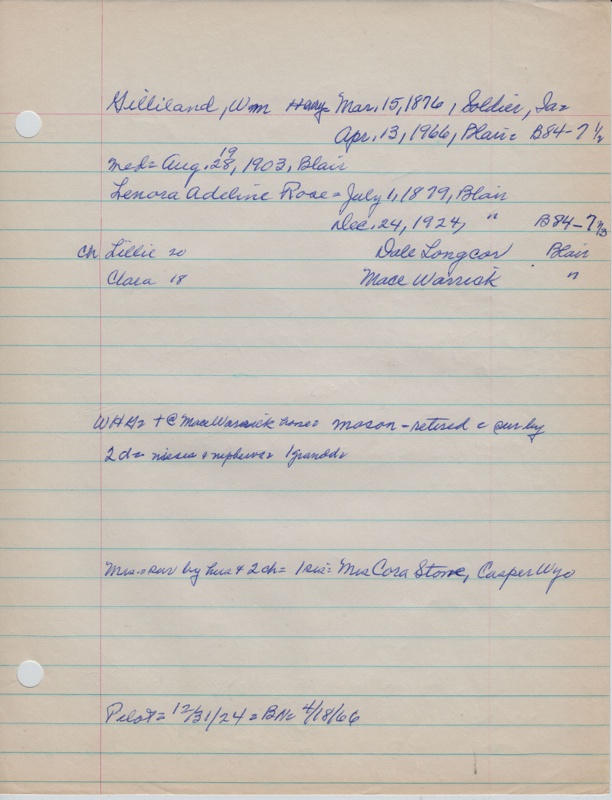 Gilliland, Wm Harry = Mar. 15, 1876, Soldier, Ia =
Apr. 13, 1966, Blair = B84-7 1/2
med = Aug. 28, 19 1903, Blair
Lenora Adeline Rose = July 1, 1879, Blair
Dec. 24, 1924, " B84-7
ch Lillie 20 Dale Longcor Blair
Clara 18 Mace Warrick "
WHG = + @ Mace Warrick home = mason - retired = sur by
2 d = nieces + nephews = 1 grandd =
Mrs. = sur by hus + 2 ch = 1 sis = Mrs Cora Stone, Casper Wyo
Pilot = 12/31/24 = BN = 4/18/66